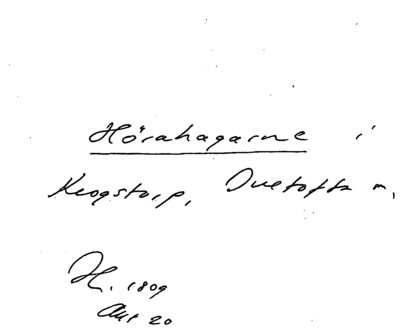 Hörahagarne i
Krogstorp, Duetofta m,
H. 1809
Akt 20